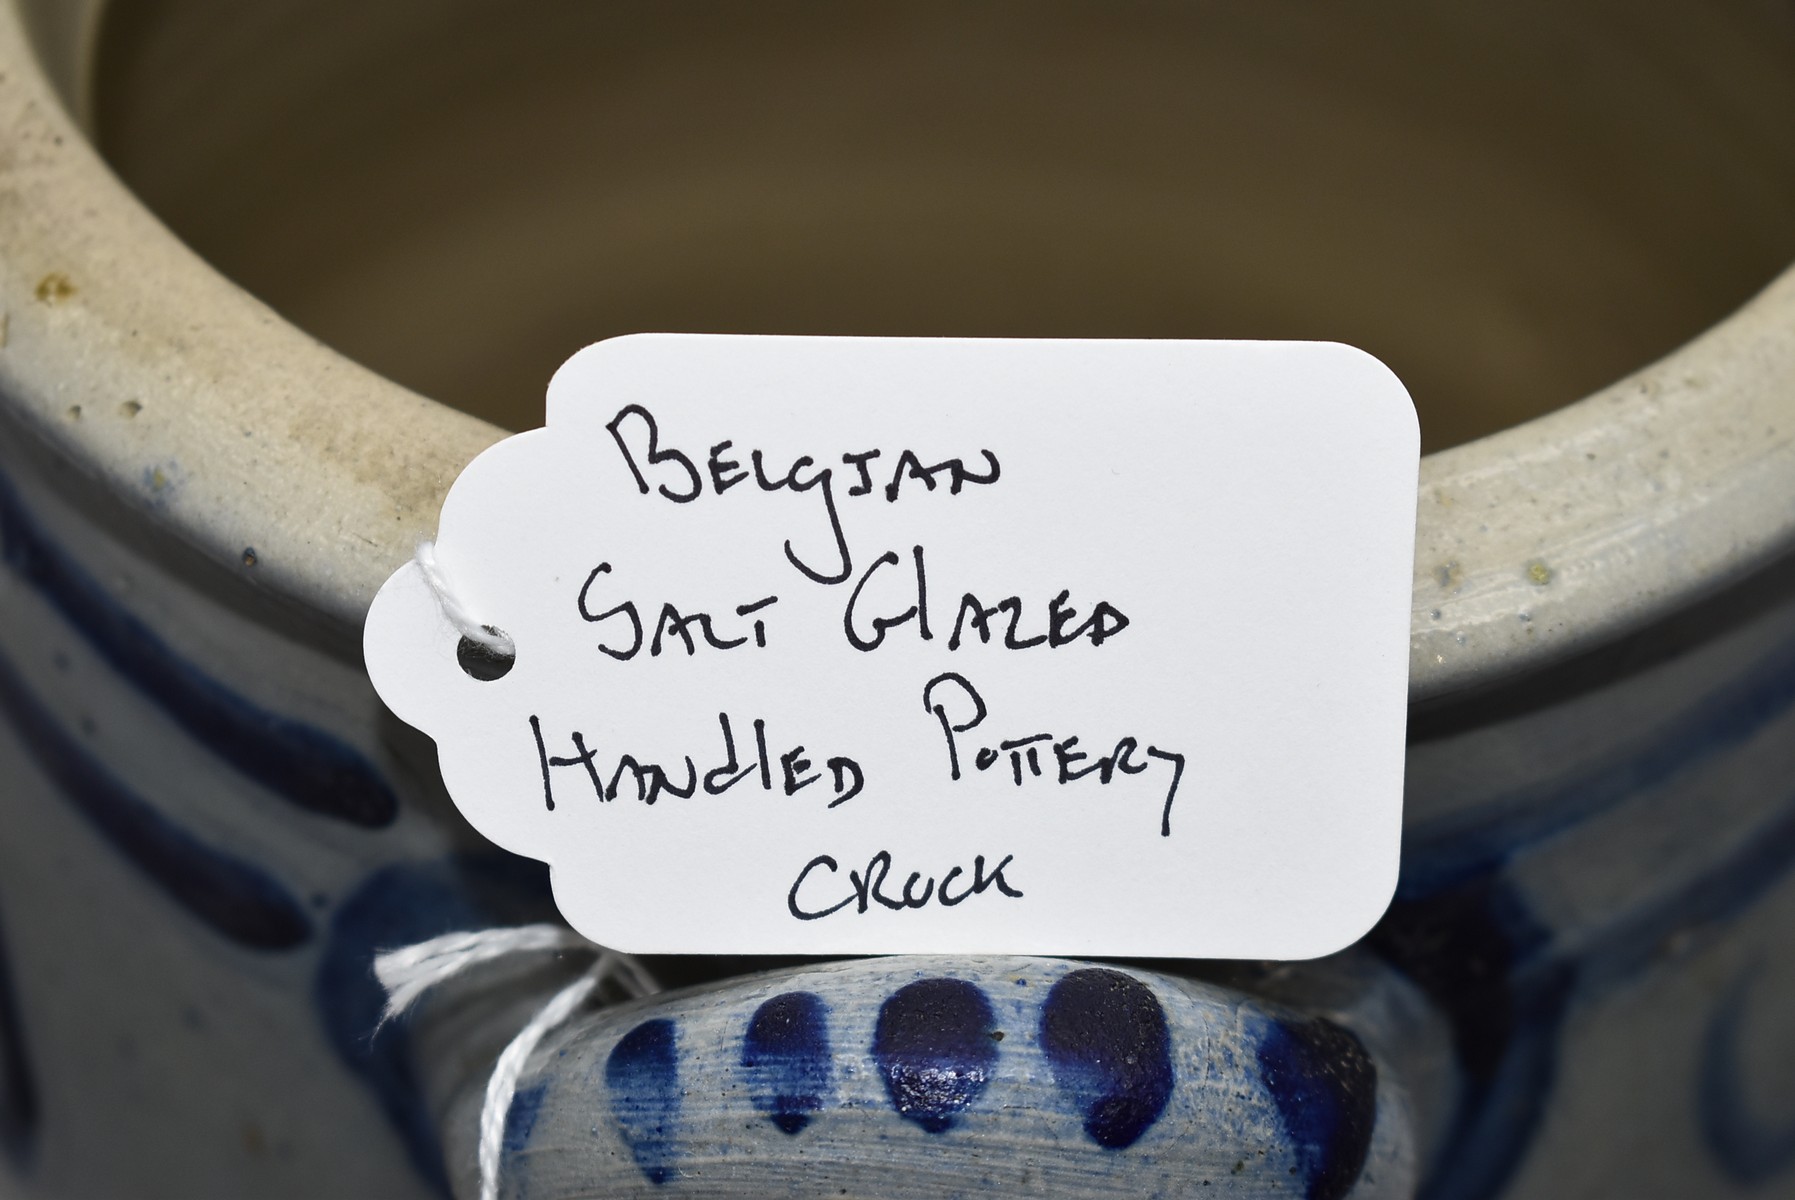 Belgian
Salt Glazed
Handled Pottery
Crock